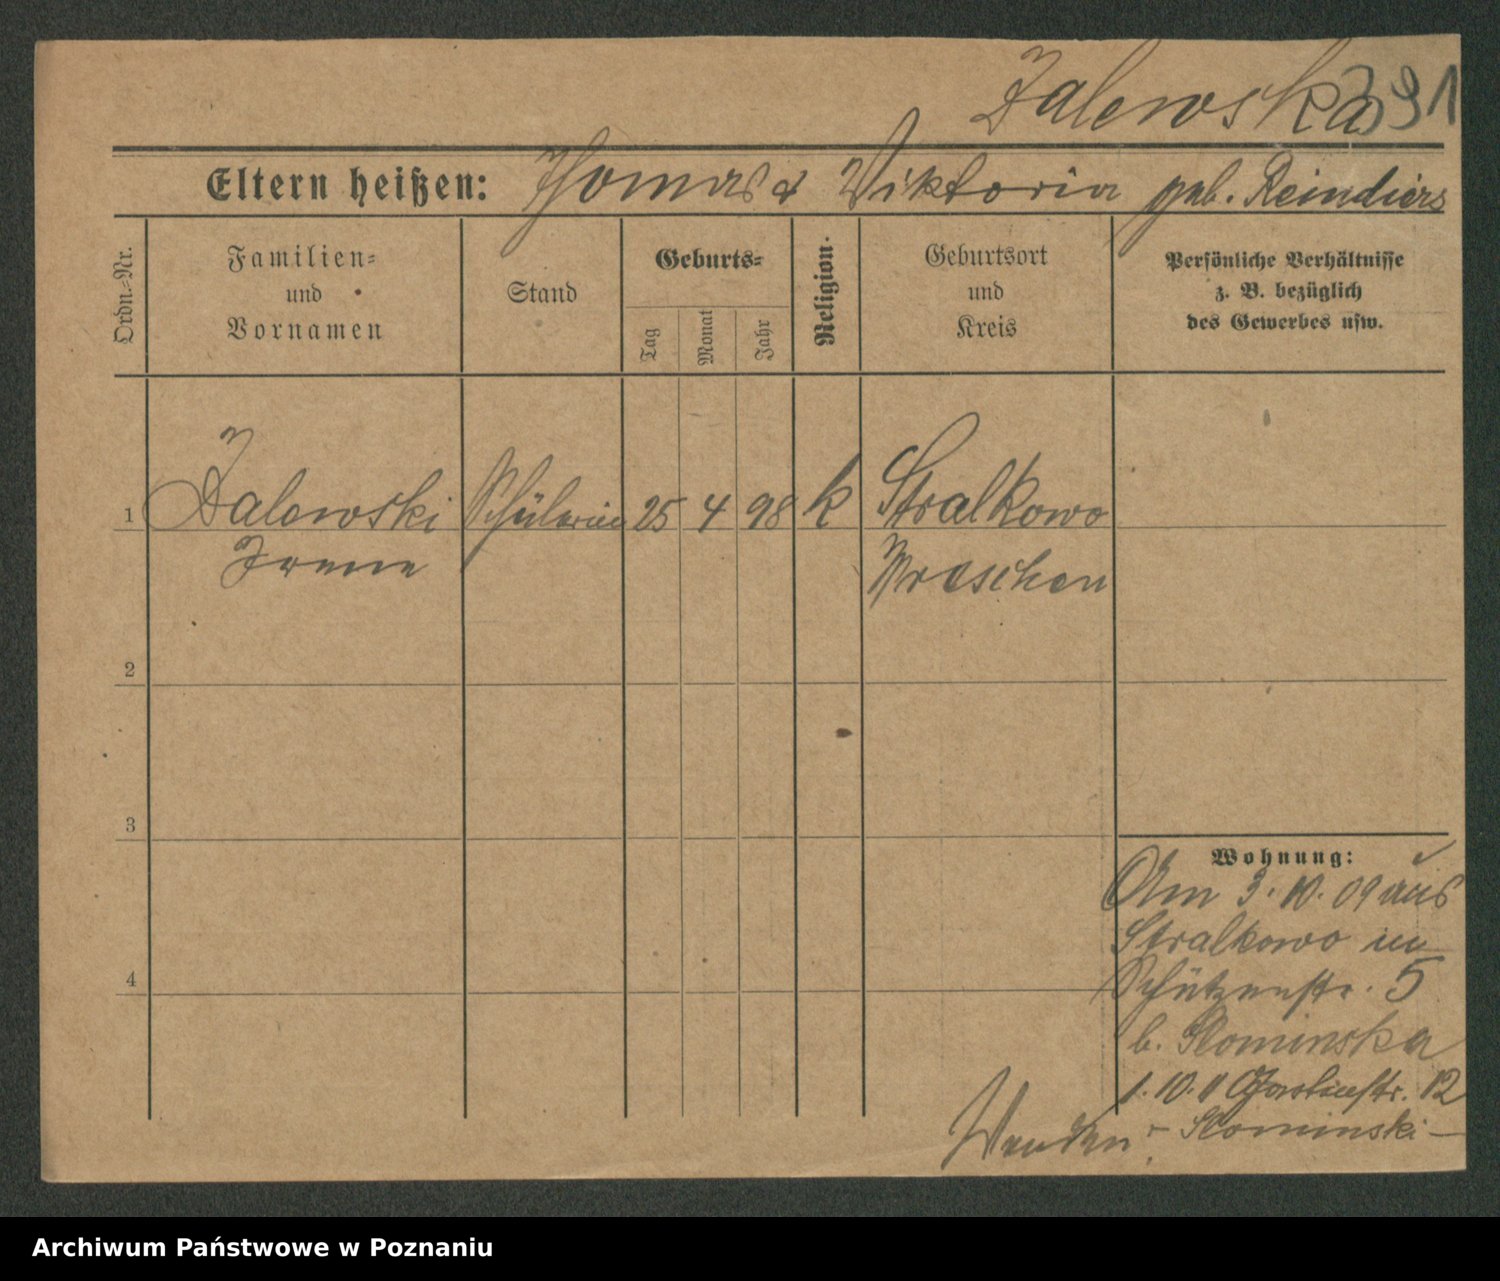 Zalewska 391
Eltern heißen: Thomas & Viktoria geb. Reindiers
Ordn.-Nr.
Familien-
und
Vornamen
Stand
Geburts-
Tag
Monat
Jahr
Religion.
Geburtsort
und
Kreis
Persönliche Verhältnisse
z. B. bezüglich
des Gewerbes usw.
1 Zalewski Schülerin 25 4 98 k Stralkowo
Irene Wreschen
2
3
Wohnung:
Am 3. 10. 09 aus
Stralkowo in
4
Schützenstr. 5
b. Slominska
1. 10. 11 str. 12
Wenden! - Slominski -
Archiwum Państwowe w Poznaniu